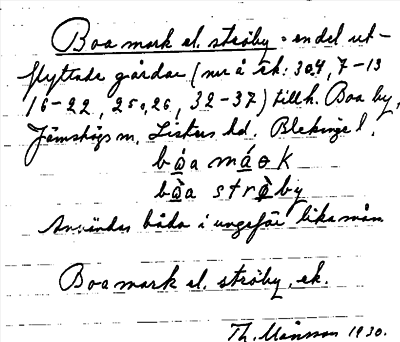 Boa mark el. ströby = en del ut-
flyttade gårdar (nr å ek: 304, 7-13
16-22, 25o,26, 32-37) till h. Boa by,
Jämshögs m, Listers hd. Blekinge l.
bòa máok
bòa strøby
Användes båda i ungefär lika mån
Boa mark el. ströby, ek.
Th. Månsson 1930.